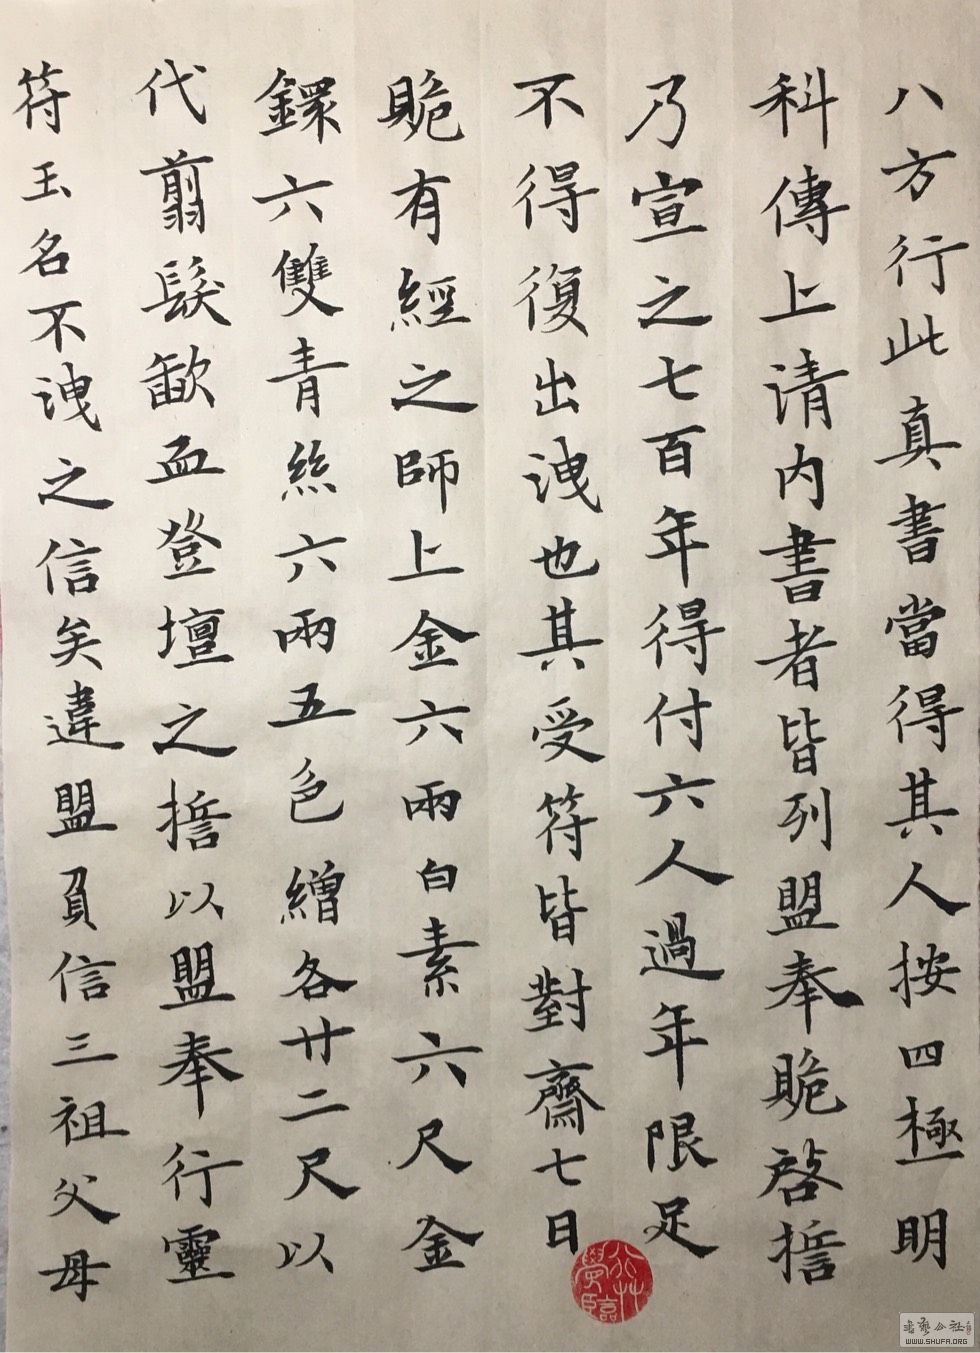 八方行此真書當得其人按四極明
科傳上清内書者皆列盟奉䞈啓擔
乃宣之七百年得付六人過年限足
不得復出洩也其受符皆對齋七日
䞈有經之師上金六兩白素六尺金
鐶六雙青絲六兩五色繒各廿二尺以
代翦髮歃血登壇之擔以盟奉行靈
符玉名不洩之信矣違盟負信三祖父母
书艺公社
WWW.SHUFA.ORG